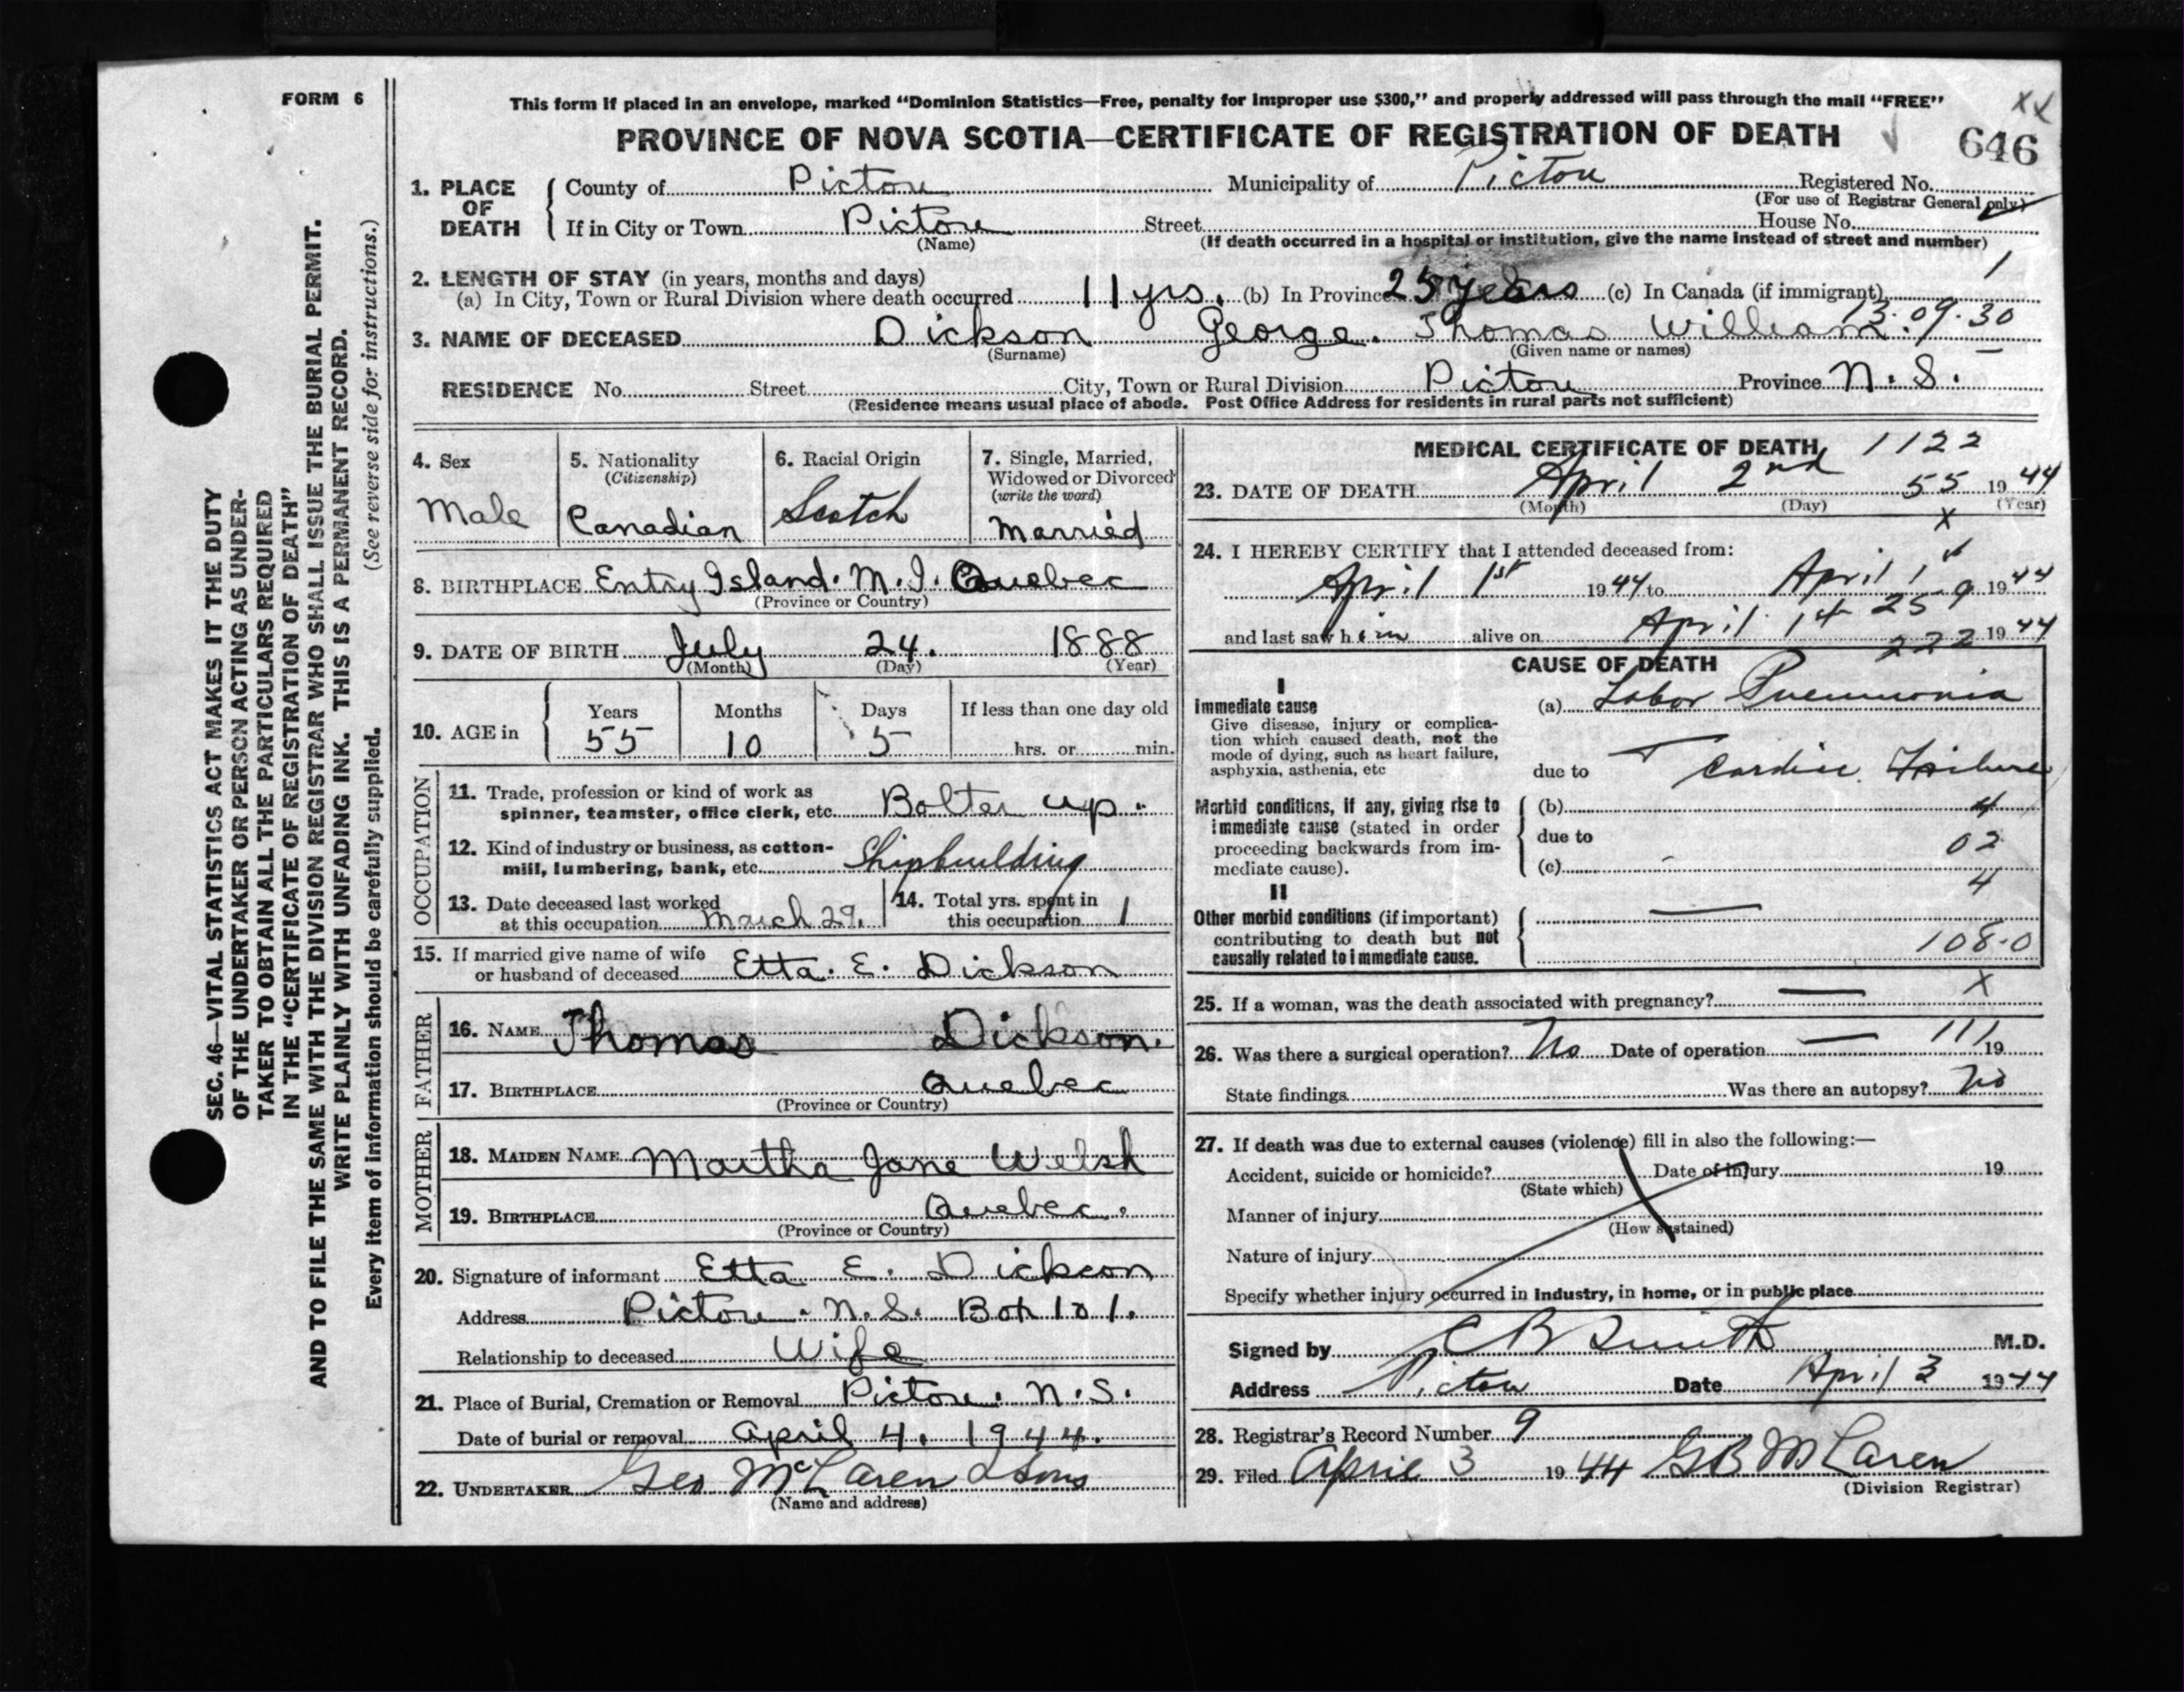 FORM 6
This form if placed in an envelope, marked "Dominion Statistics—Free, penalty for improper use $300," and properly addressed will pass through the mail "FREE"
xx
PROVINCE OF NOVA SCOTIA—CERTIFICATE OF REGISTRATION OF DEATH
646
1. PLACE OF DEATH
County of Pictou Municipality of Pictou Registered No.
(For use of Registrar General only)
If in City or Town Pictou Street House No.
(Name) (If death occurred in a hospital or institution, give the name instead of street and number)
1
2. LENGTH OF STAY (in years, months and days)
(a) In City, Town or Rural Division where death occurred 11 yrs. (b) In Province 25 years (c) In Canada (if immigrant)
13.09.30
3. NAME OF DECEASED Dickson George. Thomas William.
(Surname) (Given name or names)
RESIDENCE No. Street City, Town or Rural Division Pictou Province N.S.
(Residence means usual place of abode. Post Office Address for residents in rural parts not sufficient)
4. Sex
Male
5. Nationality
(Citizenship)
Canadian
6. Racial Origin
Scotch
7. Single, Married,
Widowed or Divorced
(write the word)
Married
8. BIRTHPLACE Entry Island. M.I. Quebec
(Province or Country)
9. DATE OF BIRTH July 24. 1888
(Month) (Day) (Year)
10. AGE in
Years Months Days If less than one day old
55 10 5 hrs. or min.
OCCUPATION
11. Trade, profession or kind of work as
spinner, teamster, office clerk, etc. Bolter up.
12. Kind of industry or business, as cotton-
mill, lumbering, bank, etc. Shipbuilding
13. Date deceased last worked
at this occupation March 29.
14. Total yrs. spent in
this occupation 1
15. If married give name of wife
or husband of deceased Etta. E. Dickson
FATHER
16. NAME Thomas Dickson.
17. BIRTHPLACE Quebec
(Province or Country)
MOTHER
18. MAIDEN NAME Martha Jane Welsh
19. BIRTHPLACE Quebec.
(Province or Country)
20. Signature of informant Etta E. Dickson
Address Pictou. N.S. Box 101.
Relationship to deceased Wife
21. Place of Burial, Cremation or Removal Pictou. N.S.
Date of burial or removal April 4. 1944.
22. UNDERTAKER Geo McLaren & Sons
(Name and address)
MEDICAL CERTIFICATE OF DEATH 1122
23. DATE OF DEATH April 2nd 55 1944
(Month) (Day) (Year)
x
24. I HEREBY CERTIFY that I attended deceased from:
April 1st 1944 to April 1st 1944
259
and last saw him alive on April 1st 1944
222
CAUSE OF DEATH
I
Immediate cause
Give disease, injury or complica-
tion which caused death, not the
mode of dying, such as heart failure,
asphyxia, asthenia, etc
(a) Lobar Pneumonia
due to Cardiac Failure
Morbid conditions, if any, giving rise to
immediate cause (stated in order
proceeding backwards from im-
mediate cause).
(b) 4
due to 02
(c)
4
II
Other morbid conditions (if important)
contributing to death but not
causally related to immediate cause.
108.0
25. If a woman, was the death associated with pregnancy? — x
26. Was there a surgical operation? No Date of operation — 111 19
State findings Was there an autopsy? No
27. If death was due to external causes (violence) fill in also the following:—
Accident, suicide or homicide? Date of injury 19
(State which)
Manner of injury
(How sustained)
Nature of injury
Specify whether injury occurred in industry, in home, or in public place
Signed by C B Smith M.D.
Address Pictou Date April 3 1944
28. Registrar's Record Number 9
29. Filed April 3 1944 G B McLaren
(Division Registrar)
SEC. 46—VITAL STATISTICS ACT MAKES IT THE DUTY
OF THE UNDERTAKER OR PERSON ACTING AS UNDER-
TAKER TO OBTAIN ALL THE PARTICULARS REQUIRED
IN THE "CERTIFICATE OF REGISTRATION OF DEATH"
AND TO FILE THE SAME WITH THE DIVISION REGISTRAR WHO SHALL ISSUE THE BURIAL PERMIT.
WRITE PLAINLY WITH UNFADING INK. THIS IS A PERMANENT RECORD.
Every item of information should be carefully supplied. (See reverse side for instructions.)